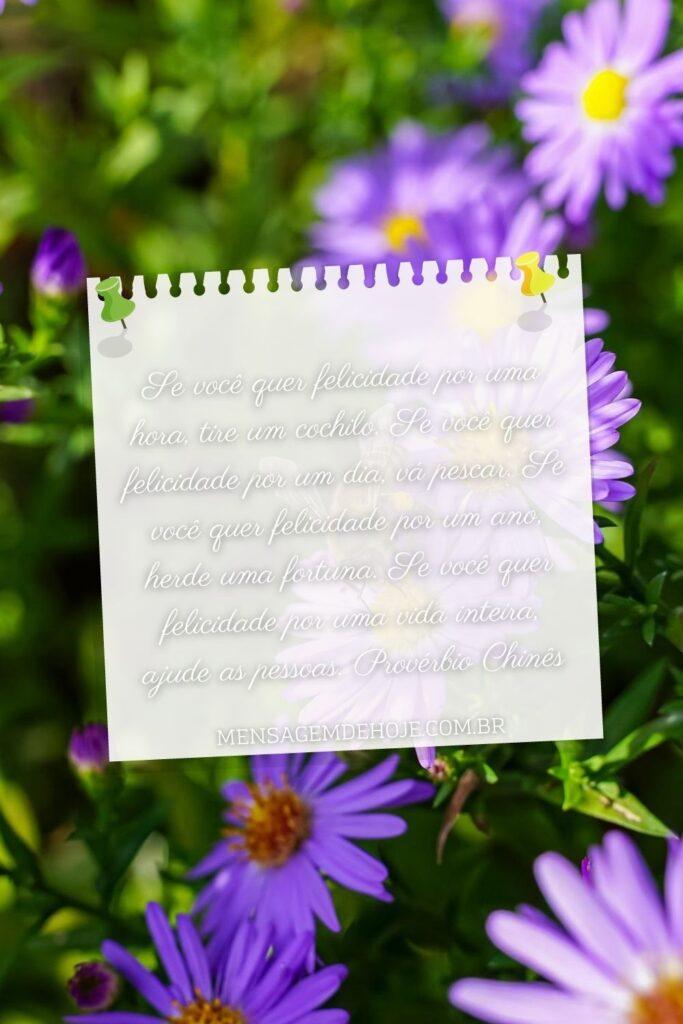 Se você quer felicidade por uma
hora, tire um cochilo. Se você quer
felicidade por um dia, vá pescar. Se
você quer felicidade por um ano,
herde uma fortuna. Se você quer
felicidade por uma vida inteira,
ajude as pessoas. Provérbio Chinês
MENSAGEMDEHOJE.COM.BR